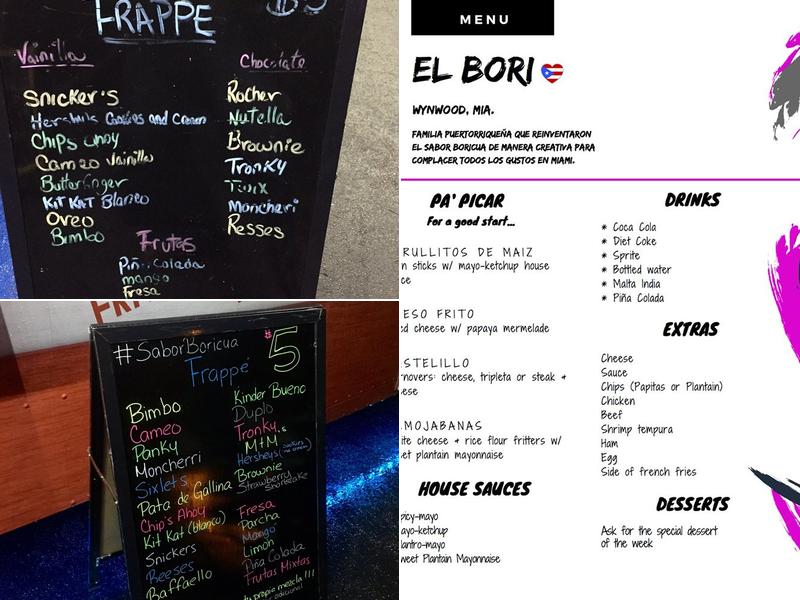 FRAPPE
$5
Vainilla
Snicker's
Hershey's Cookies and Cream
Chips ahoy
Cameo Vainilla
Butterfinger
Kit Kat Blanco
Oreo
Bimbo
Chocolate
Rocher
Nutella
Brownie
Tronky
Twix
Moncheri
Resses
Frutas
Piña Colada
mango
Fresa
#SaborBoricua
$5
Frappé
Bimbo
Cameo
Panky
Moncherri
Sixlets
Pata de Gallina
Chip's Ahoy
Kit Kat (blanco)
Snickers
Reeses
Raffaello
Kinder Bueno
Duplo
Tronky
M+M's
Hershey's (cookies n cream)
Brownie
Strawberry Shortcake
Fresa
Parcha
Mango
Limón
Piña Colada
Frutas Mixtas
tu propia mezcla!!!
MENU
EL BORI
WYNWOOD, MIA.
FAMILIA PUERTORRIQUEÑA QUE REINVENTARON
EL SABOR BORICUA DE MANERA CREATIVA PARA
COMPLACER TODOS LOS GUSTOS EN MIAMI.
PA' PICAR
For a good start...
RULLITOS DE MAIZ
n sticks w/ mayo-ketchup house
ce
ESO FRITO
ed cheese w/ papaya mermelade
STELILLO
rnovers: cheese, tripleta or steak &
ese
MOJABANAS
ite cheese & rice flour fritters w/
eet plantain mayonnaise
HOUSE SAUCES
picy-mayo
ayo-ketchup
lantro-mayo
weet Plantain Mayonnaise
DRINKS
* Coca Cola
* Diet Coke
* Sprite
* Bottled water
* Malta India
* Piña Colada
EXTRAS
Cheese
Sauce
Chips (Papitas or Plantain)
Chicken
Beef
Shrimp tempura
Ham
Egg
Side of french fries
DESSERTS
Ask for the special dessert
of the week